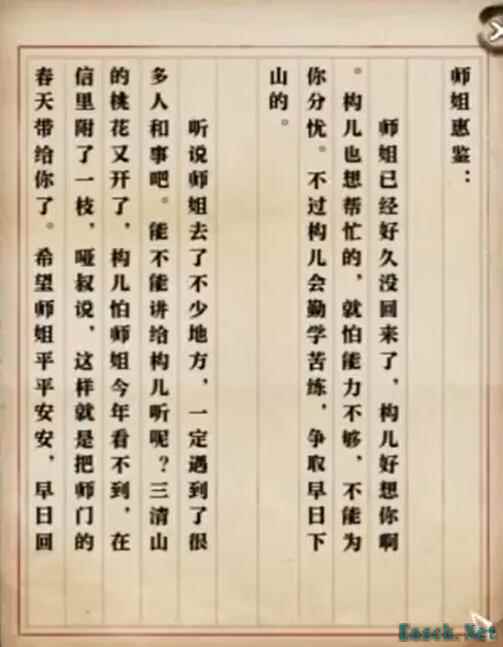 师姐惠鉴：
师姐已经好久没回来了，构儿好想你啊
。构儿也想帮忙的，就怕能力不够，不能为
你分忧。不过构儿会勤学苦练，争取早日下
山的。
听说师姐去了不少地方，一定遇到了很
多人和事吧。能不能讲给构儿听呢？三清山
的桃花又开了，构儿怕师姐今年看不到，在
信里附了一枝，哑叔说，这样就是把师门的
春天带给你了。希望师姐平平安安，早日回
Eouch.Net